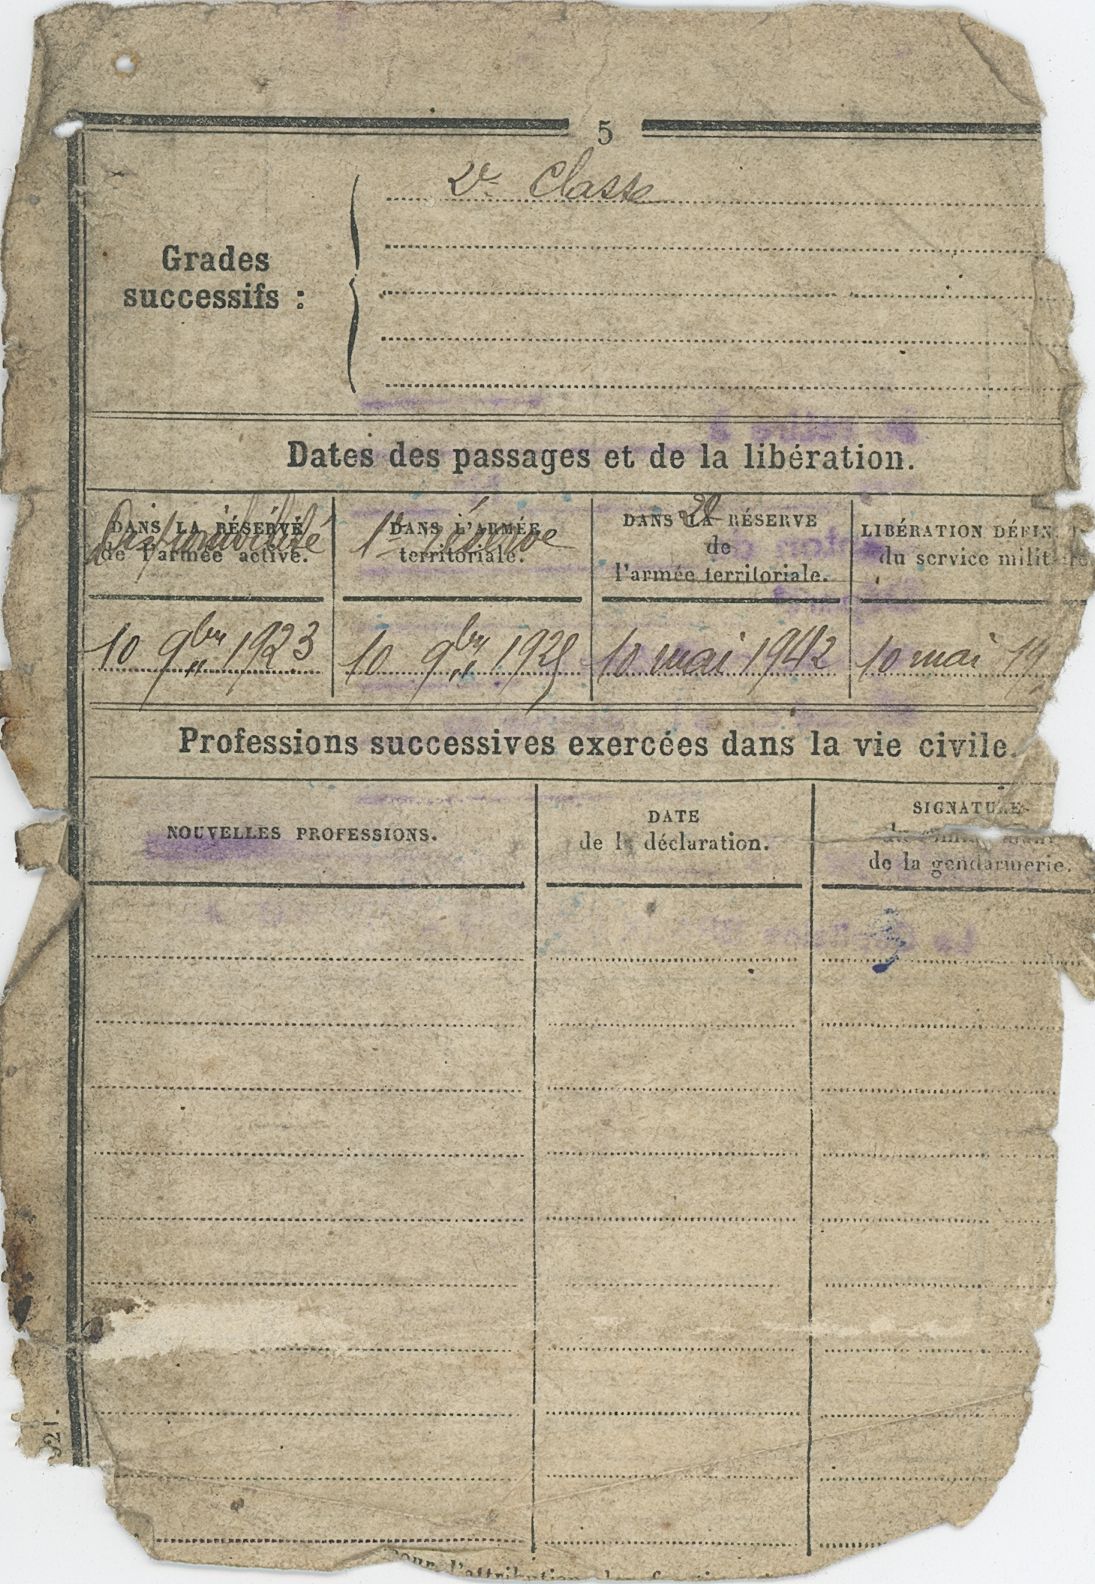 5
2e Classe
Grades
successifs :
Dates des passages et de la libération.
Disponibilité
DANS LA RÉSERVE
de l'armée active.
1re réserve
DANS L'ARMÉE
territoriale.
2e
DANS LA RÉSERVE
de
l'armée territoriale.
LIBÉRATION DÉFIN
du service milit
10 9bre 1923
10 9bre 1925
10 mai 1942
10 mai 19
Professions successives exercées dans la vie civile.
NOUVELLES PROFESSIONS.
DATE
de la déclaration.
SIGNATURE
de la gendarmerie.
921.
pour l'attribution